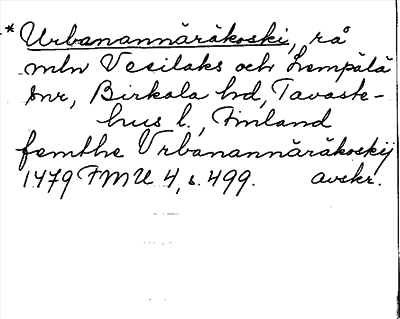 * Urbanannäräkoski, rå
mln Vesilaks och Lempälä
snr, Birkala hd, Tavaste-
hus l., Finland
femthe Vrbanannäräkoskij
1479 FMU 4, s. 499. avskr.